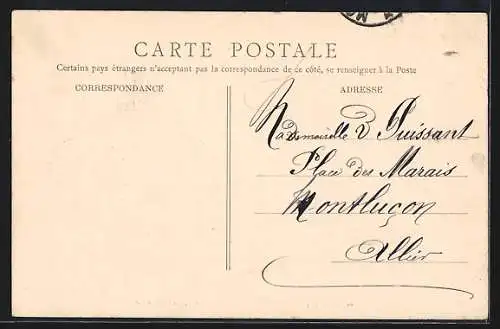 CARTE POSTALE
Certains pays étrangers n'acceptant pas la correspondance de ce côté, se renseigner à la Poste
CORRESPONDANCE
ADRESSE
Mademoiselle B Puissant
Place des Marais
Montluçon
Allier